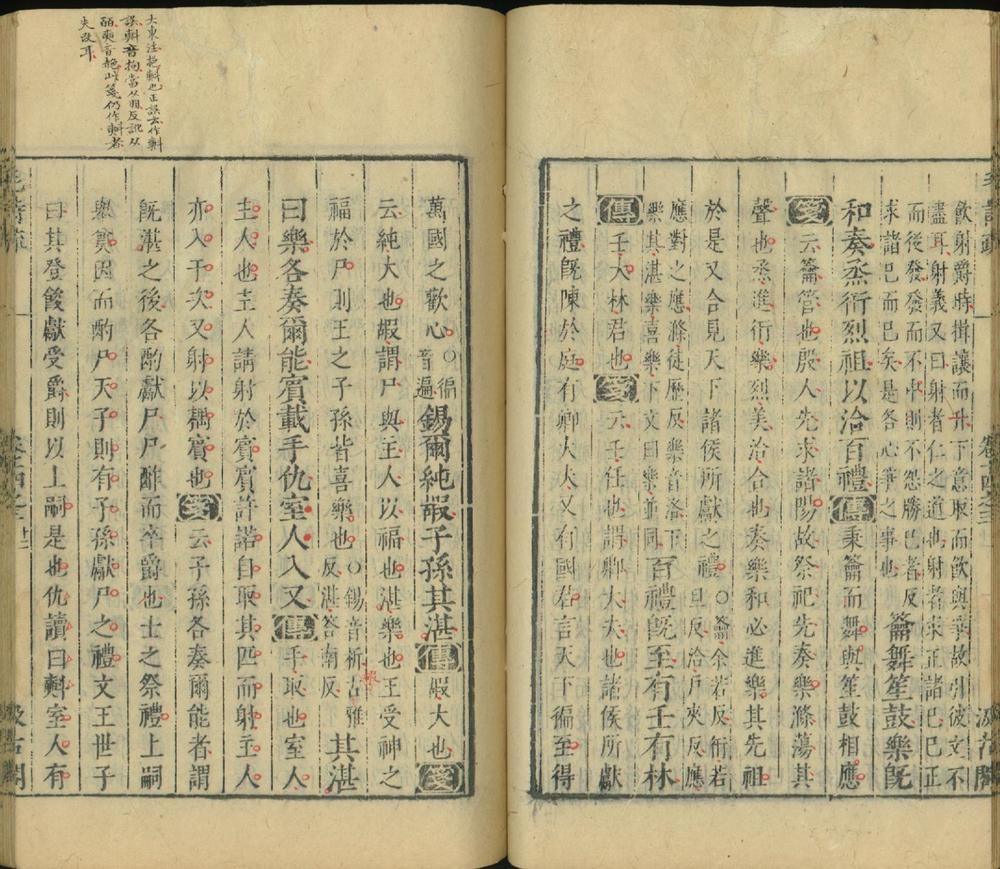 飲射爵時揖讓而升下意取而飲與爭故引彼文不
盡耳射義又曰射者仁之道也射者求正諸已已正
而後發發而不中則不怨勝已者反
求諸已而已矣是各心爭之事也
籥舞笙鼓樂旣
和奏烝衎烈祖以洽百禮傳秉籥而舞與笙鼓相應
箋云籥管也殷人先求諸陽故祭祀先奏樂滌蕩其
聲也烝進衎樂烈美洽合也奏樂和必進樂其先祖
於是又合見天下諸侯所獻之禮○籥余若反衎若
旦反洽戶夾反應
應對之應滌徒歷反樂音洛下
樂其湛樂喜樂下文曰樂並同
百禮旣至有壬有林
傳壬大林君也箋云壬任也謂卿大夫也諸侯所獻
之禮旣陳於庭有卿大夫又有國君言天下徧至得
萬國之歡心○徧
音遍
錫爾純嘏子孫其湛傳嘏大也箋
云純大也嘏謂尸與主人以福也湛樂也王受神之
福於尸則王之子孫皆喜樂也○錫音祈古雅
反湛答南反
嘏
其湛
曰樂各奏爾能賓載手仇室人入又傳手取也室人
主人也主人請射於賓賓許諾自取其匹而射主人
亦入于次又射以耦賓也箋云子孫各奏爾能者謂
旣湛之後各酌獻尸尸酢而卒爵也士之祭禮上嗣
舉奠因而酌尸天子則有子孫獻尸之禮文王世子
曰其登餕獻受爵則以上嗣是也仇讀曰㪺室人有
大東注挹㪺也正誤云作㪺
誤㪺音拘當从㕚反訛从
夾改耳
卷十四之三
汲古閣